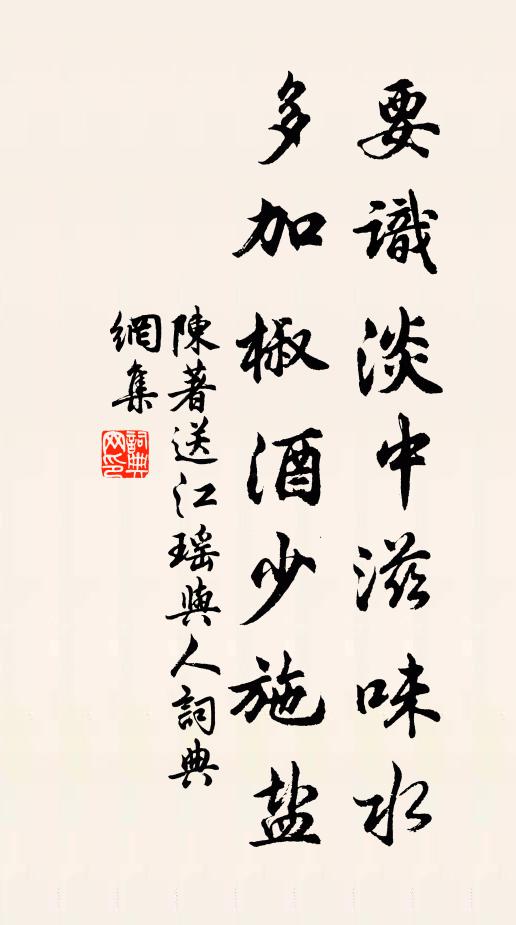 要識淡中滋味水
多加椒酒少施盐
陳著送江瑶與人詞典
網集
詞典網印